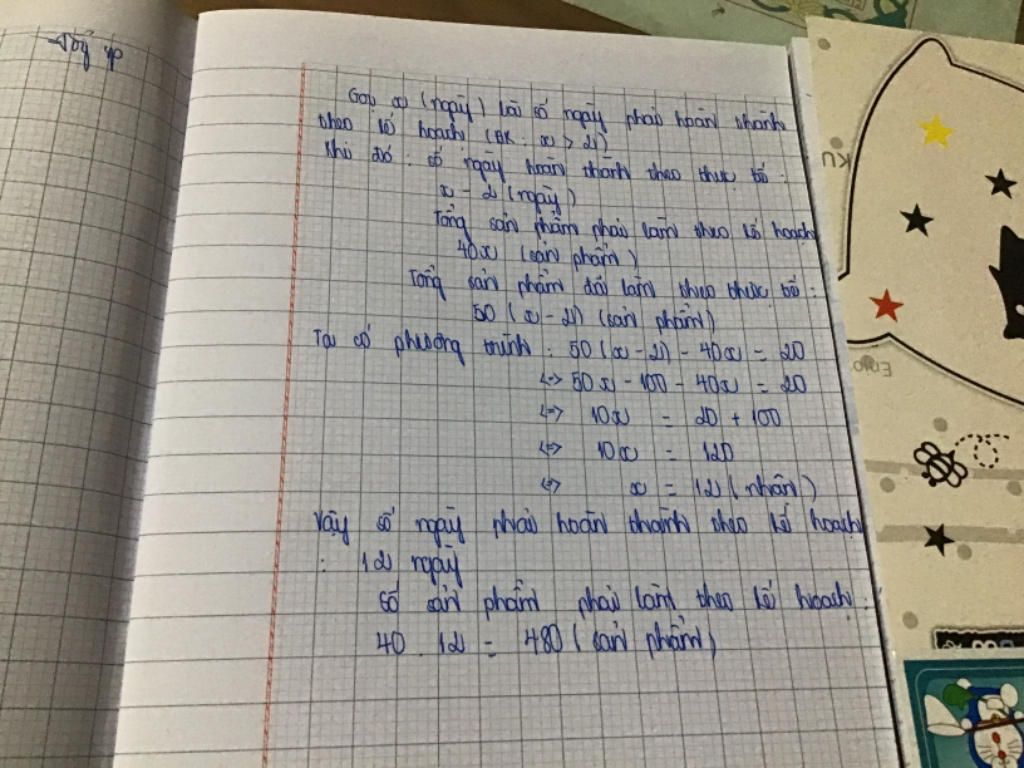 Gọi x (ngày) là số ngày phải hoàn thành
theo kế hoạch (ĐK: x > 2)
Khi đó: số ngày hoàn thành theo thực tế:
x - 2 (ngày)
Tổng sản phẩm phải làm theo kế hoạch
40x (sản phẩm)
Tổng sản phẩm đã làm theo thực tế:
50 (x - 2) (sản phẩm)
Ta có phương trình: 50 (x - 2) - 40x = 20
<=> 50x - 100 - 40x = 20
<=> 10x = 20 + 100
<=> 10x = 120
<=> x = 12 (nhận)
Vậy số ngày phải hoàn thành theo kế hoạch
: 12 ngày
số sản phẩm phải làm theo kế hoạch:
40 . 12 = 480 (sản phẩm)
KU